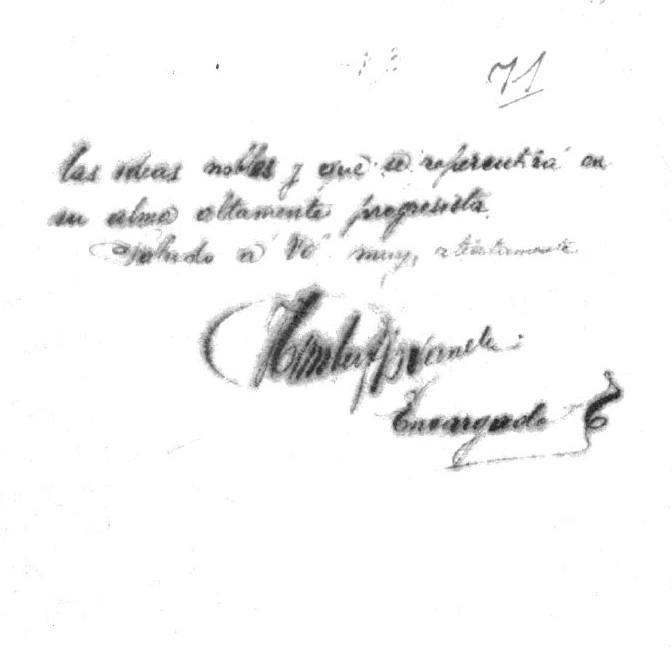 71
las ideas nobles y que se repercutirá en
su alma altamente progresista.
Saludo á Vd muy, atentamente
Encargado